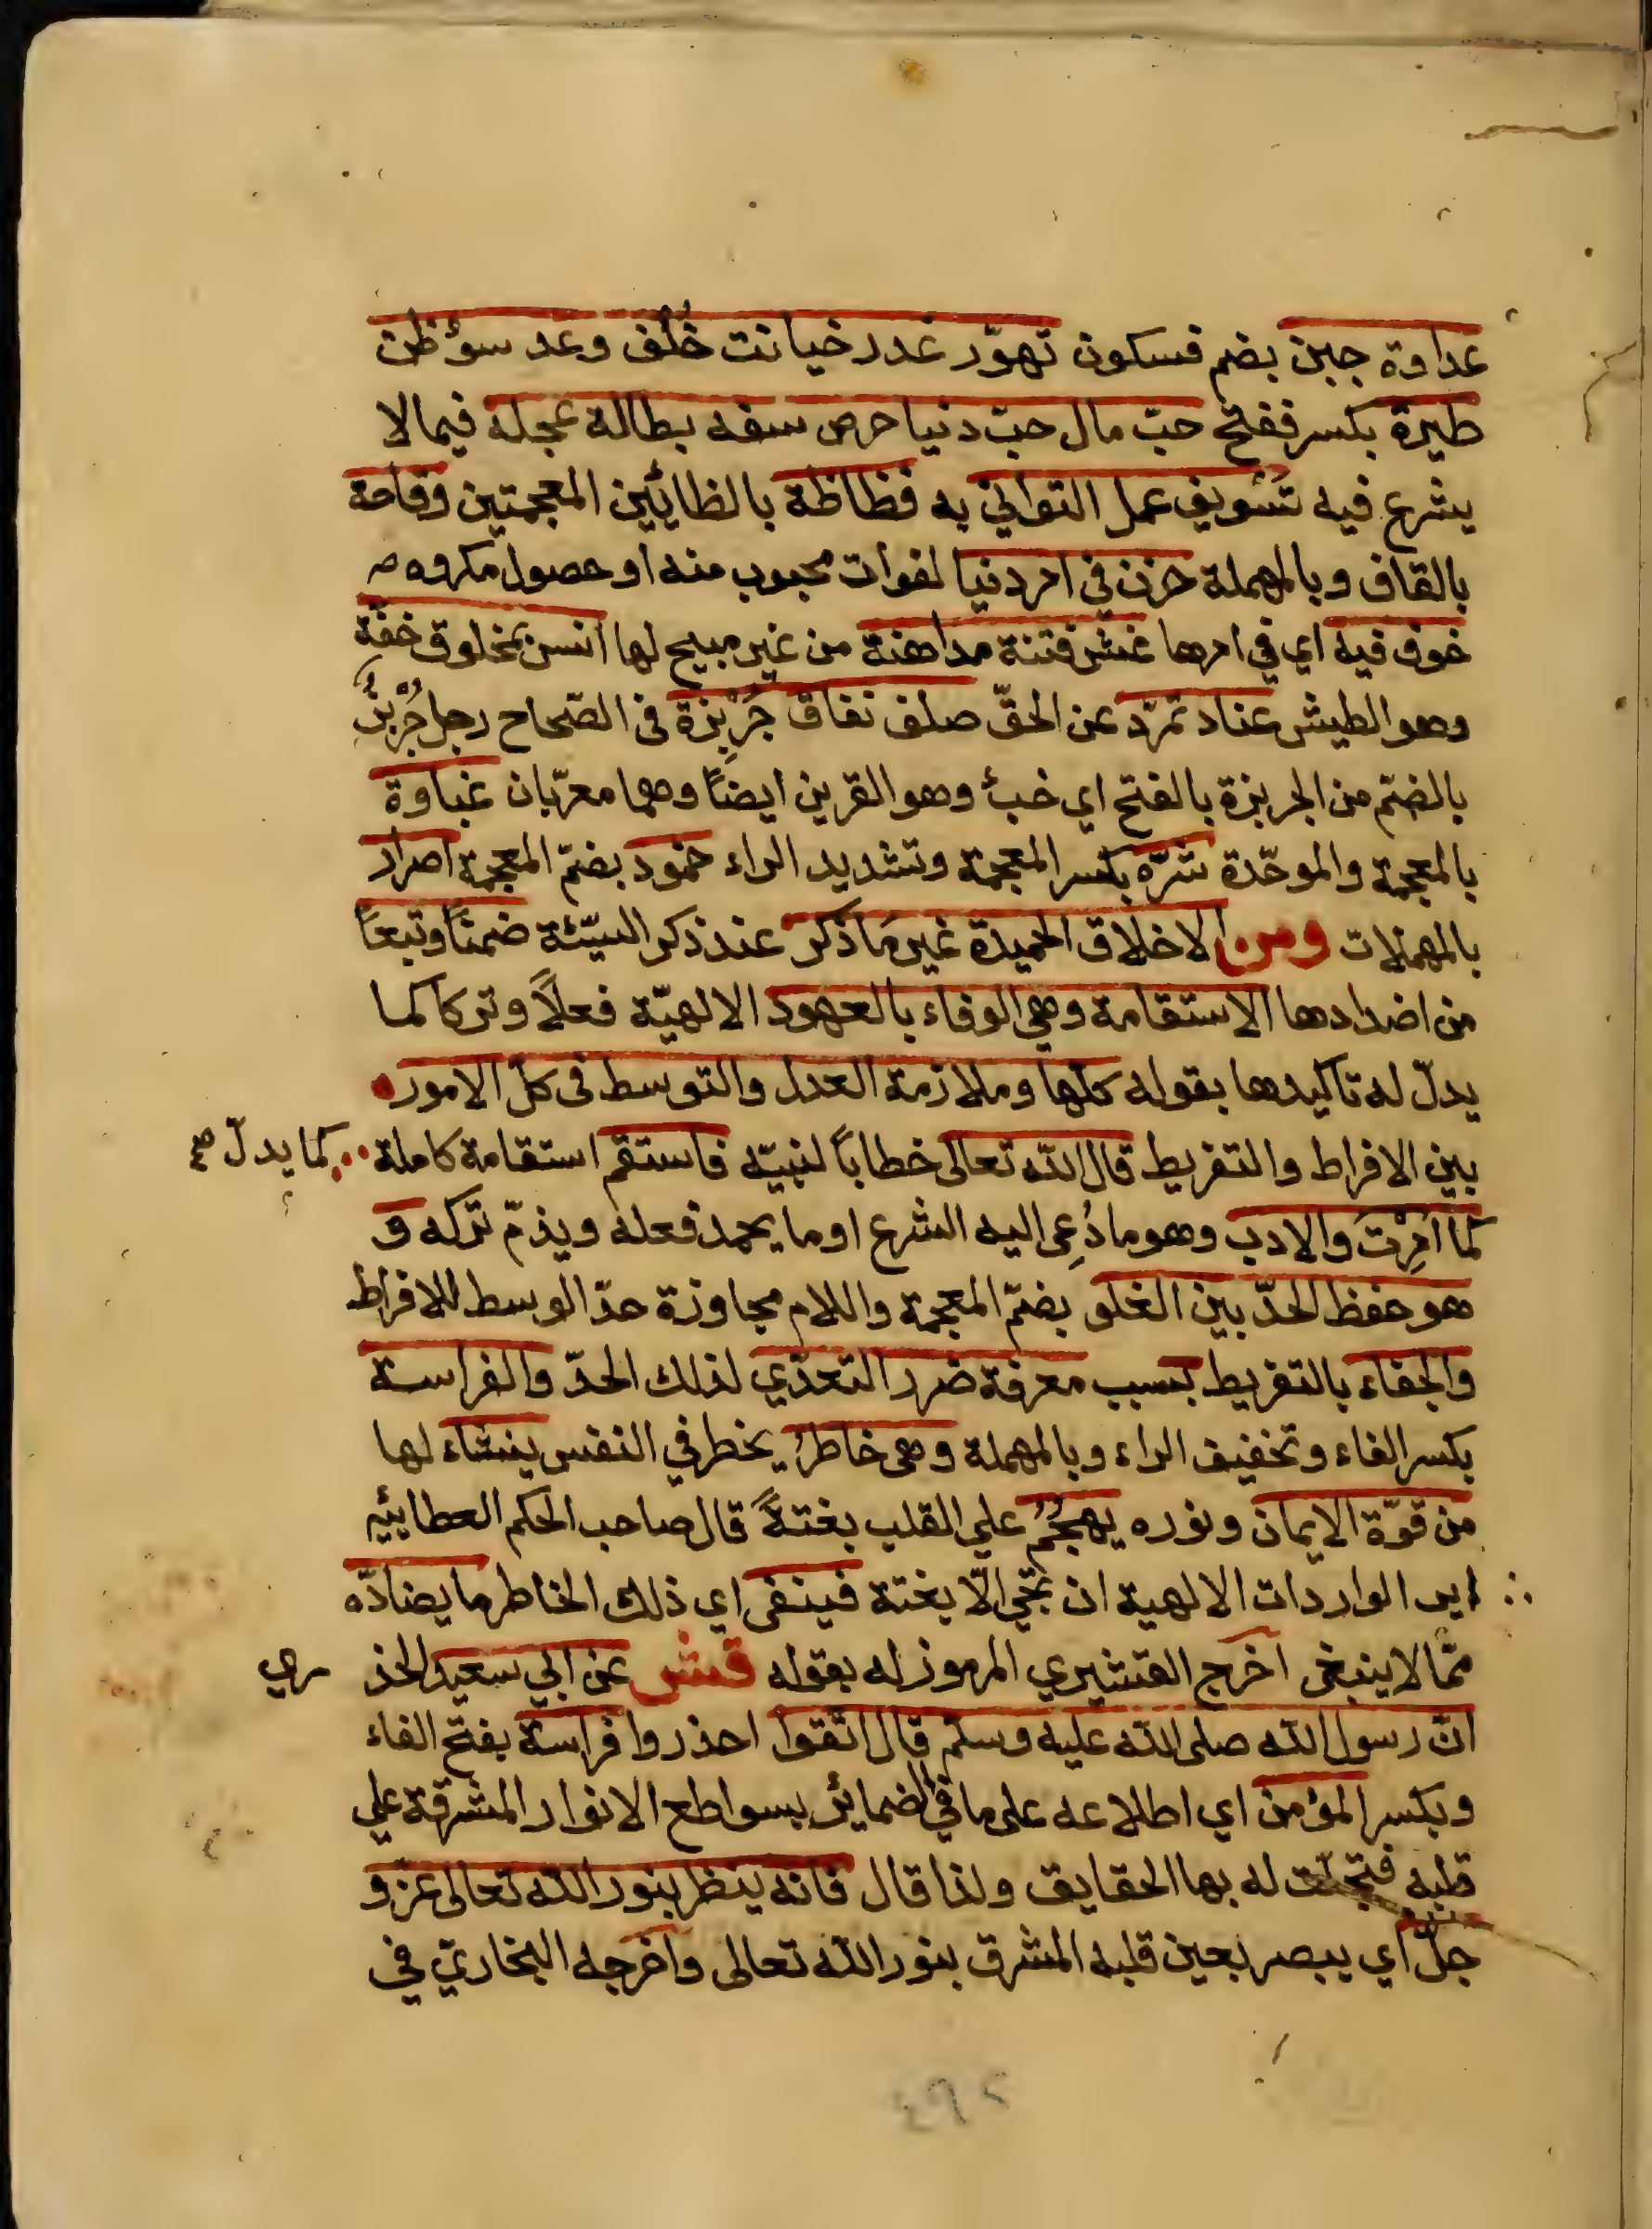 عداوة جبن بضم فسكون تهوّر غدر خيانت خُلْف وعد سوٴظن
طيرة بكسر ففتح حبّ مال حبّ دنيا حرص سفه بطالة عجلة فيما لا
يشرع فيه تسْويف عمل التواني به فظاظة بالظائين المعجمتين وقاحة
بالقاف وبالمهملة حزن في امر دنيا لفوات محبوب منه او حصول مكروه
خوف فيه اي في امرها غش فتنة مداهنة من غير مبيح لها انس بمخلوق خفّة
وهو الطيش عناد تمرّد عن الحقّ صلف نفاق جُرْبزة في الصّحاح رجل جُرْبُز
بالضمّ من الجربزة بالفتح اي خبٌ وهو القربز ايضاً وهما معرّبان غباوة
بالمعجمة والموحّدة شرّه بكسر المعجمة وتشديد الراء خمود بضمّ المعجمة اصرار
بالمهملات ومن الاخلاق الحميدة غير مَا ذكر عند ذكر السيّئة ضمناً وتبعاً
من اضدادها الاستقامة وهي الوفاء بالعهود الالهيّة فعلاً وتركا كما
يدلّ له تاكيدها بقوله كلّها وملازمة العدل والتوسط في كلّ الامور
بين الافراط والتفريط قال الله تعالى خطاباً لنبيّه فاستقم استقامة كاملة كما يدلّ صح
كما اُمِرْتَ والادب وهو ما دُعِى اليه الشرع او ما يحمد فعله ويذمّ تركه و
هو حفظ الحدّ بين الغلو بضمّ المعجمة واللام مجاوزة حدّ الوسط للافراط
والجفاء بالتفريط بسبب معرفة ضرر التعدّي لذلك الحدّ والفراسة
بكسر الفاء وتخفيف الراء وبالمهملة وهى خاطرٌ يخطر في النفس ينشاء لها
من قوّة الايمان ونوره يهجُمُ على القلب بغتةً قال صاحب الحكم العطائيه
ابى الواردات الالهية ان تجي الّا بغتة فينفى اي ذلك الخاطر ما يضادّه
ممّا لا ينبغى اخرج القشيري المرموز له بقوله قش عن ابي سعيد الخد ري
انّ رسول الله صلى الله عليه وسلم قال اتّقوا احذروا فراسة بفتح الفاء
وبكسر المؤمن اي اطلاعه على ما في الضمائر بسواطع الانوار المشرقة علي
قلبه فتجلّت له بها الحقايق ولذا قال فانه ينظر بنور الله تعالى عزّ و
جلّ اي يبصر بعين قلبه المشرق بنور الله تعالى واخرجه البخاريّ في